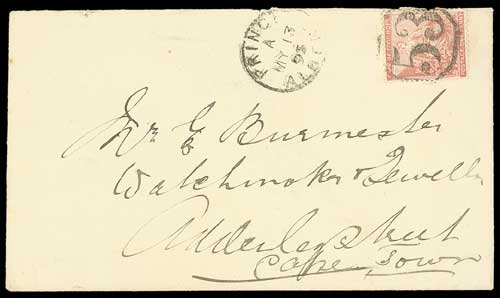 PRINCE ALBERT
A
MY 13
95
53
Mr E Burmester
Watchmaker & Jeweller
Adderley Street
Cape Town